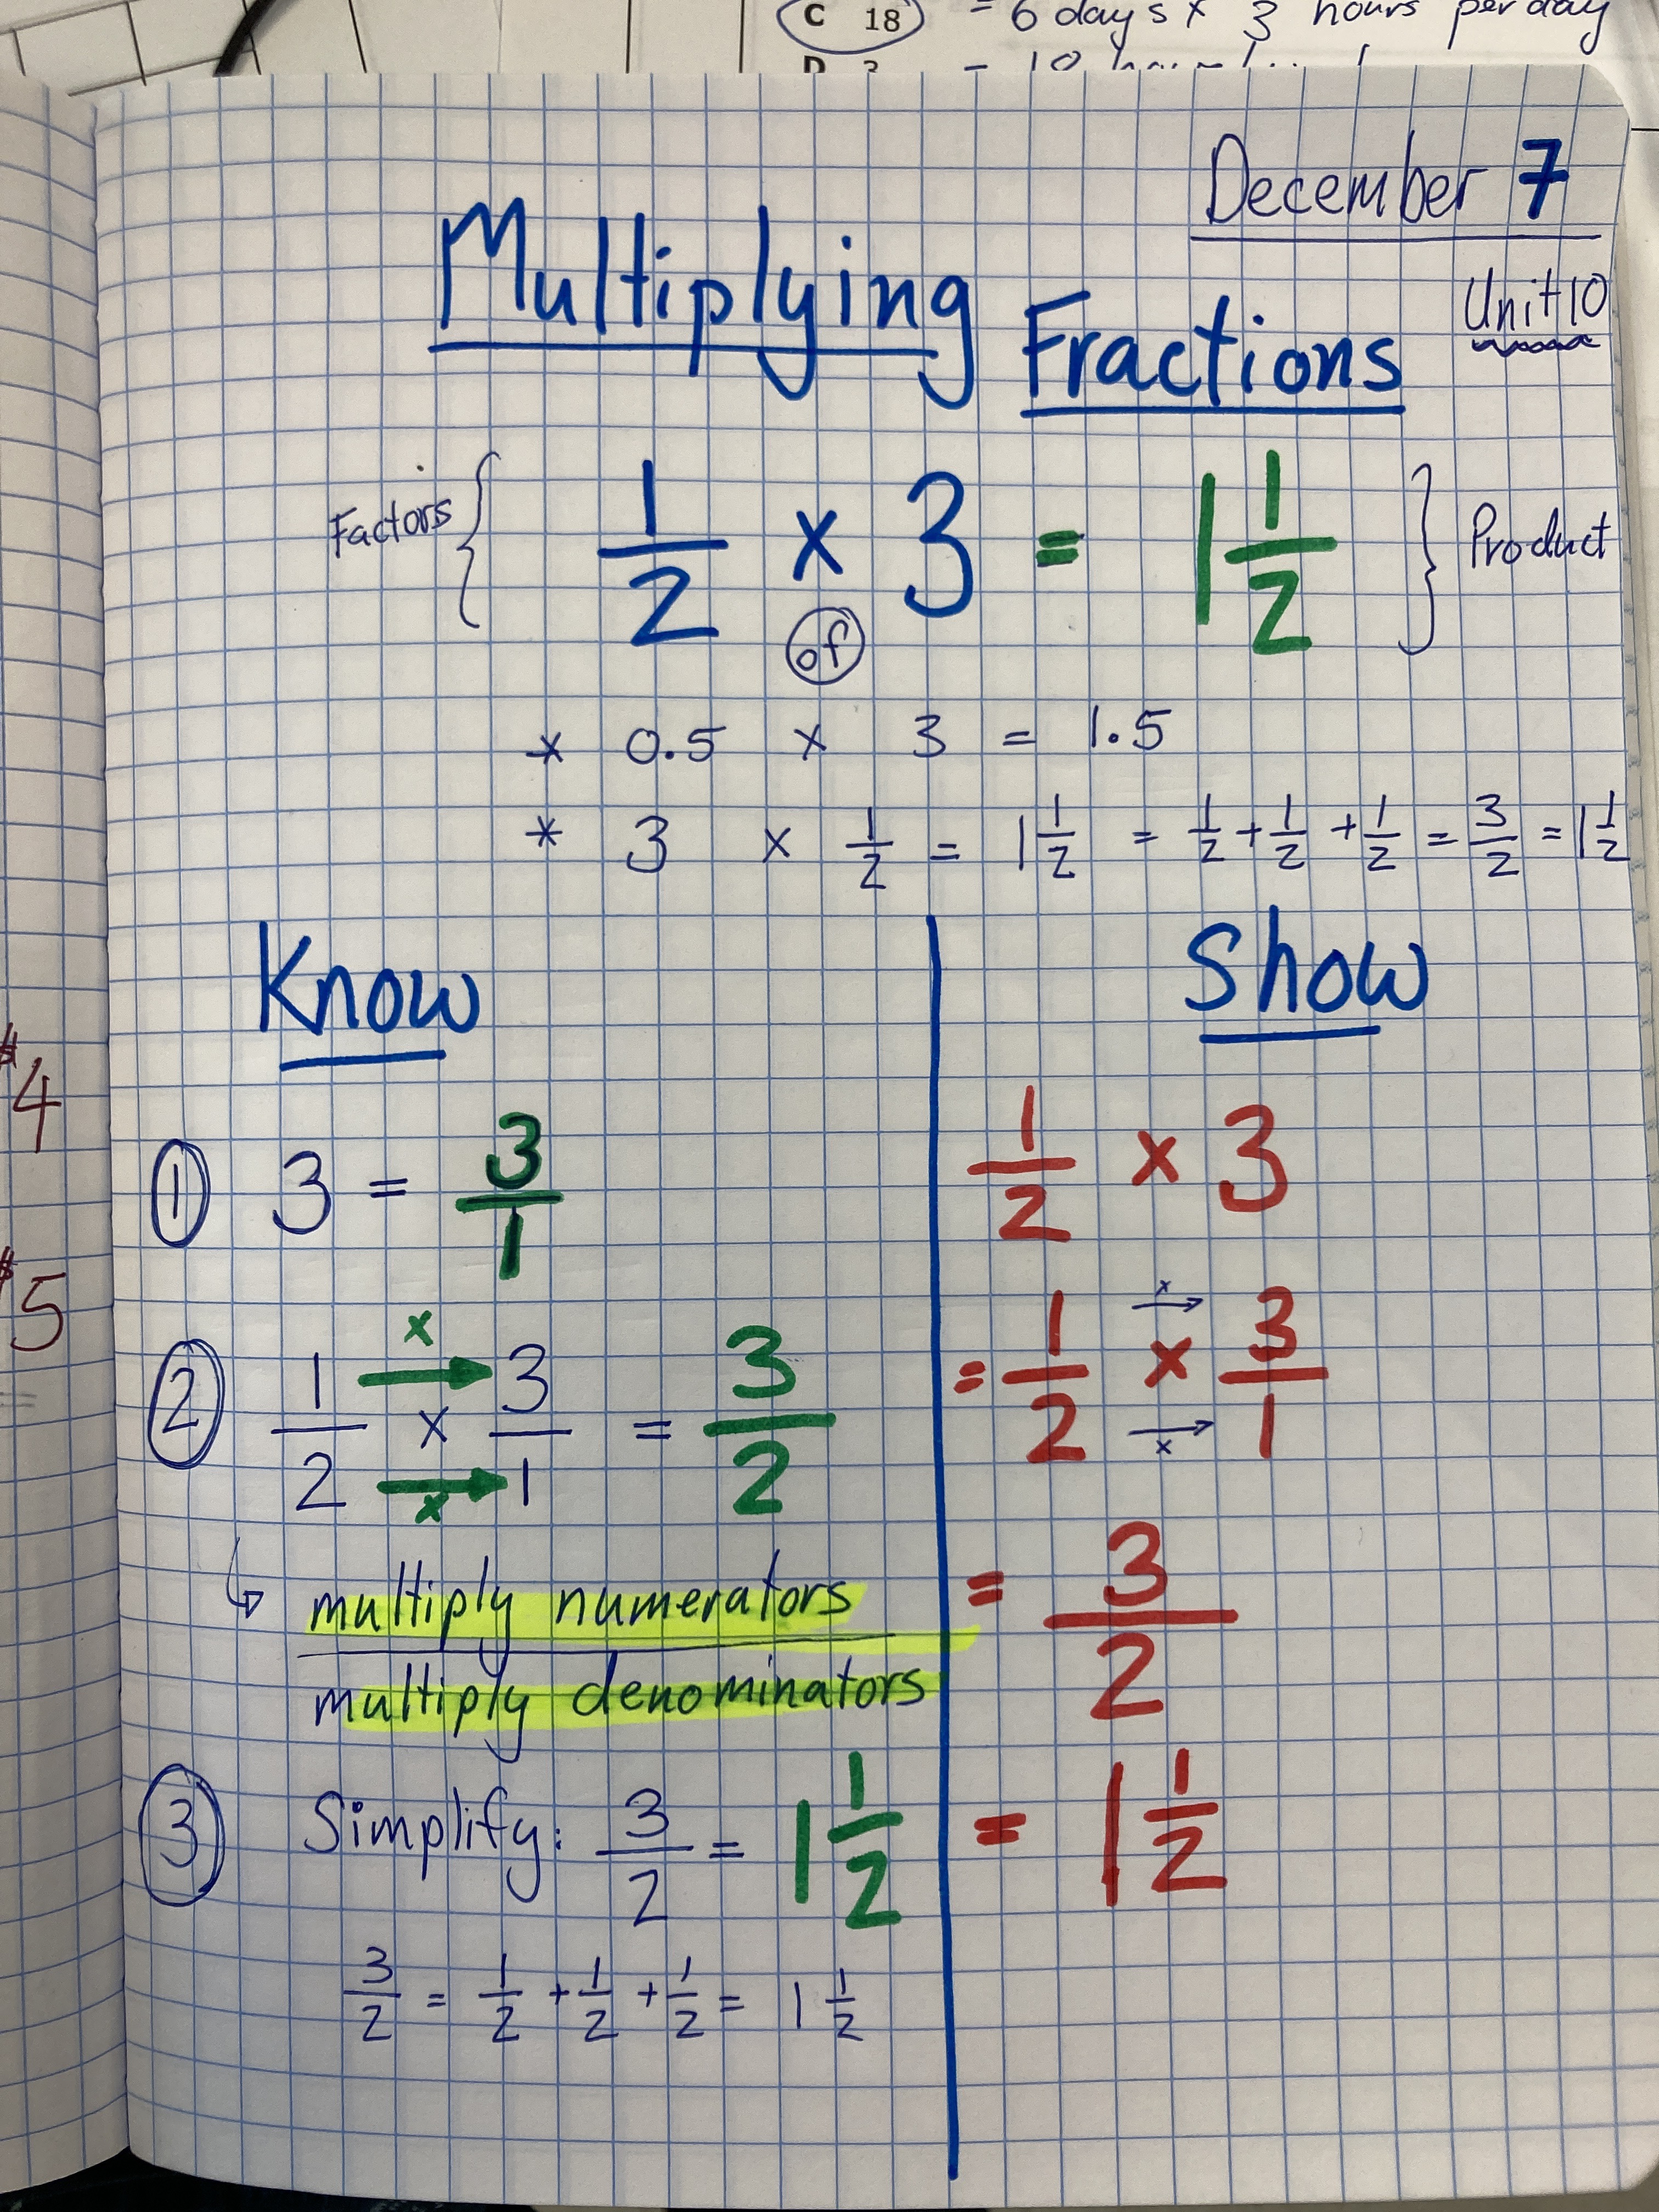 C 18 = 6 days x 3 hours per day
December 7
Unit 10
Multiplying Fractions
Factors { 1/2 x 3 = 1 1/2 } Product
of
* 0.5 x 3 = 1.5
* 3 x 1/2 = 1 1/2 = 1/2 + 1/2 + 1/2 = 3/2 = 1 1/2
Know
① 3 = 3/1
x
② 1/2 → x → 3/1 = 3/2
x
↳ multiply numerators
multiply denominators
③ Simplify: 3/2 = 1 1/2
3/2 = 1/2 + 1/2 + 1/2 = 1 1/2
Show
1/2 x 3
x →
= 1/2 x 3/1
→ x
= 3/2
= 1 1/2
$4
$5